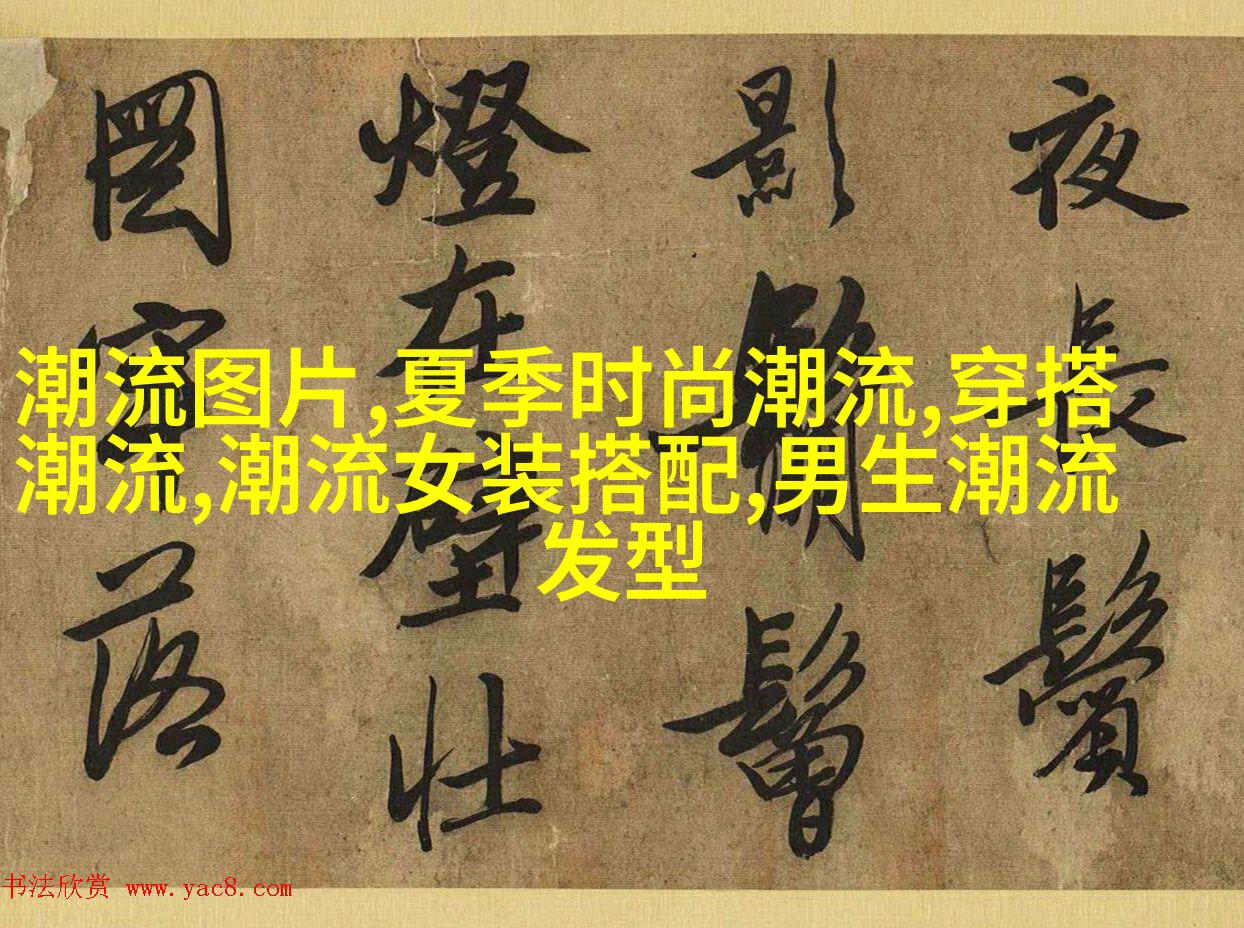 夜長鬢
影鬅鬙
燈在壁壮
圖落
潮流图片,夏季时尚潮流,穿搭
潮流,潮流女装搭配,男生潮流
发型
书法欣赏 www.yac8.com